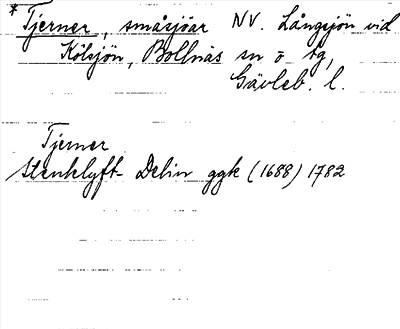 * Tjerner, småsjöar NV. Långsjön vid
Kölsjön, Bollnäs sn o tg,
Gävleb. l.
Tjerner
Stenklyft- Delin ggk (1688) 1782